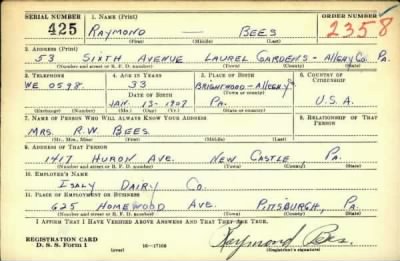 SERIAL NUMBER 1. NAME (Print) ORDER NUMBER
425 RAYMOND — BEES 2358
(First) (Middle) (Last)
2. ADDRESS (Print)
53 SIXTH AVENUE LAUREL GARDENS - ALLEGHY CO. PA.
(Number and street or R. F. D. number) (Town) (County) (State)
3. TELEPHONE 4. AGE IN YEARS 5. PLACE OF BIRTH 6. COUNTRY OF CITIZENSHIP
WE 0598. 33 BRIGHTWOOD - ALLEGHY
DATE OF BIRTH (Town) (County)
JAN. 13 - 1907 PA. U.S.A.
(Exchange) (Number) (Mo.) (Day) (Yr.) (State or country)
7. NAME OF PERSON WHO WILL ALWAYS KNOW YOUR ADDRESS 8. RELATIONSHIP OF THAT PERSON
MRS. R.W. BEES.
(Mr., Mrs., Miss) (First) (Middle) (Last)
9. ADDRESS OF THAT PERSON
1417 HURON AVE. NEW CASTLE, PA.
(Number and street or R. F. D. number) (Town) (County) (State)
10. EMPLOYER'S NAME
ISALY DAIRY CO.
11. PLACE OF EMPLOYMENT OR BUSINESS
625 HOMEWOOD AVE. PITTSBURGH, PA.
(Number and street or R. F. D. number) (Town) (County) (State)
I AFFIRM THAT I HAVE VERIFIED ABOVE ANSWERS AND THAT THEY ARE TRUE.
REGISTRATION CARD
D. S. S. Form 1 (over) 16—17105 Raymond Bees.
(Registrant's signature)